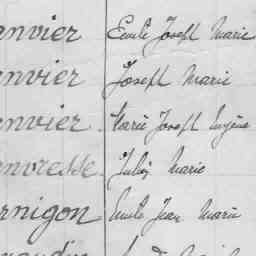 anvier Emile Joseph Marie
anvier Joseph Marie
anvier Marie Joseph Eugène
anvresse Jules Marie
rnigon Emile Jean Marie